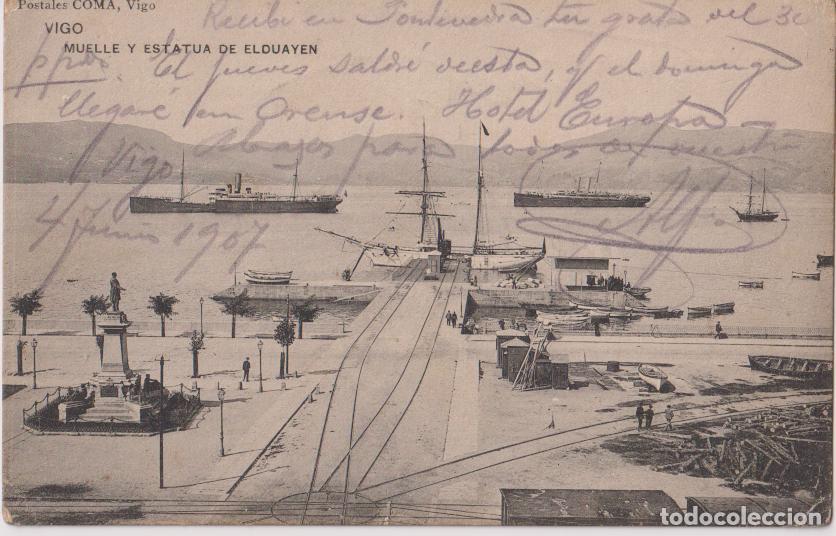 Postales COMA, Vigo
VIGO
MUELLE Y ESTATUA DE ELDUAYEN
Recibí en Pontevedra tu grata del 30
ppdo. El jueves saldré de esta, y el domingo
llegaré en Orense. Hotel Europa
Abrazos para todos de vuestro
Vigo
4 Junio 1907
todocoleccion.net